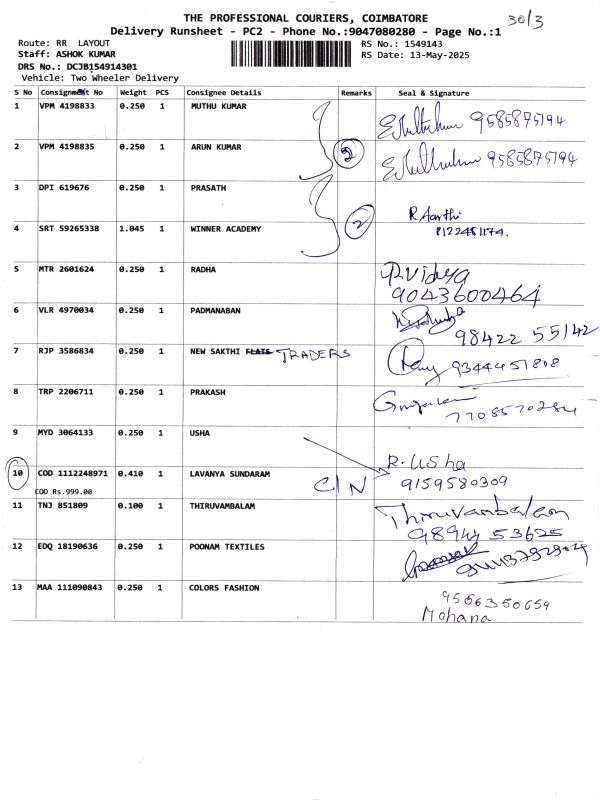 THE PROFESSIONAL COURIERS, COIMBATORE
30/3
Delivery Runsheet - PC2 - Phone No.:9047080280 - Page No.:1
Route: RR LAYOUT
RS No.: 1549143
Staff: ASHOK KUMAR
RS Date: 13-May-2025
DRS No.: DCJB154914301
Vehicle: Two Wheeler Delivery
S No Consignment No Weight PCS Consignee Details Remarks Seal & Signature
1 VPM 4198833 0.250 1 MUTHU KUMAR 9585875194
2 VPM 4198835 0.250 1 ARUN KUMAR 2 9585875194
3 DPI 619676 0.250 1 PRASATH R Aarthi
4 SRT 59265338 1.045 1 WINNER ACADEMY 2 8122451174.
5 MTR 2601624 0.250 1 RADHA R Vidya
9043600464
6 VLR 4970034 0.250 1 PADMANABAN
98422 55142
7 RJP 3586834 0.250 1 NEW SAKTHI FLATS TRADERS 9344451808
8 TRP 2206711 0.250 1 PRAKASH
7708570284
9 MYD 3064133 0.250 1 USHA R. Usha
10 COD 1112248971 0.410 1 LAVANYA SUNDARAM C/N 9159580309
COD Rs.999.00
11 TNJ 851809 0.100 1 THIRUVAMBALAM Thiruvambalam
98944 53625
12 EDQ 18190636 0.250 1 POONAM TEXTILES
13 MAA 111090843 0.250 1 COLORS FASHION 9566350659
Mohana